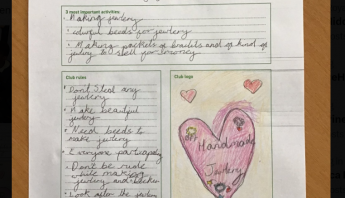 3 most important activities:
Making jewlery
colorful beads for jewlery
Making packets of braclits and of kind of
jewlry to stell for money
Club rules
Dont Steal any
jewlery
Make beautiful
jewlery
Need beeds to
make jewlery
Everyone participate
Don't be rude
while making
jewlery and
Look after the jewlery
Club logo
Handmade
Jewlery